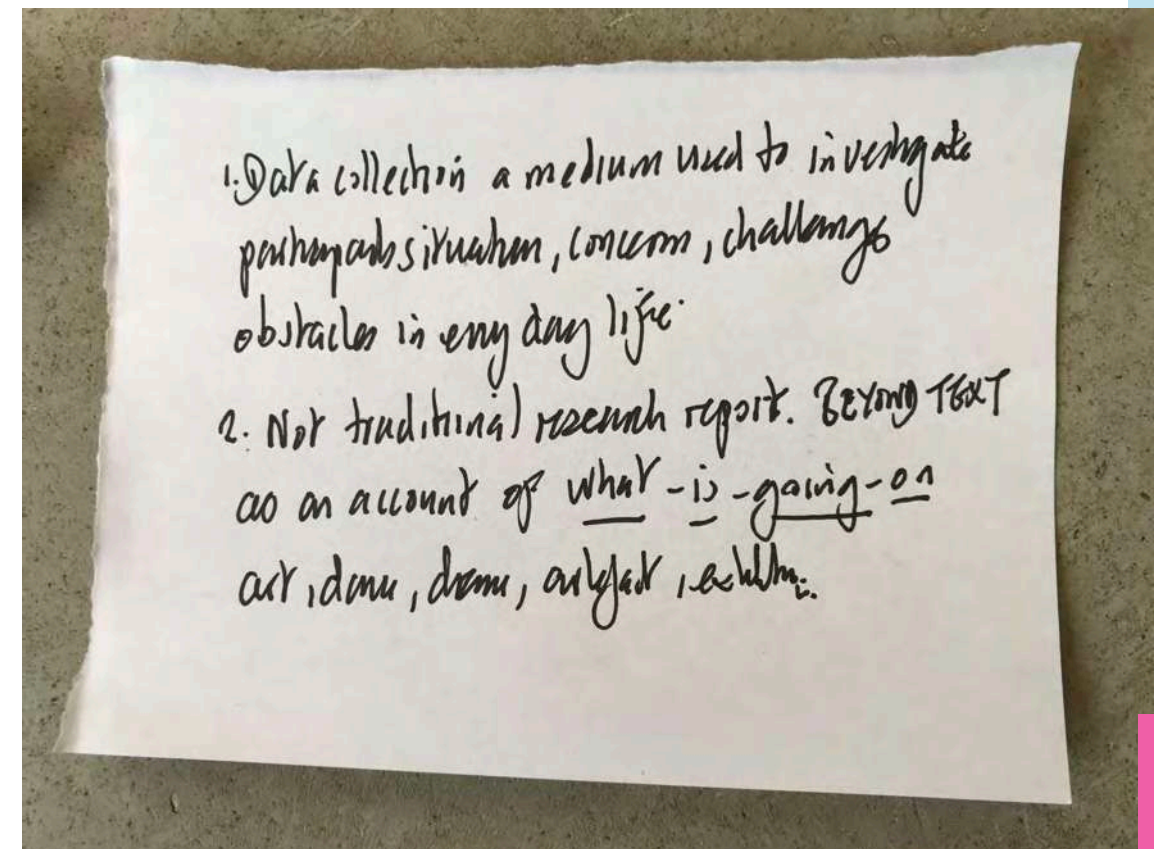 1. Data collection a medium used to investigate
participants situation, concerns, challenges
obstacles in every day life.
2. Not traditional research report. BEYOND TEXT
as an account of what-is-going-on
art, dance, drama, artefact,